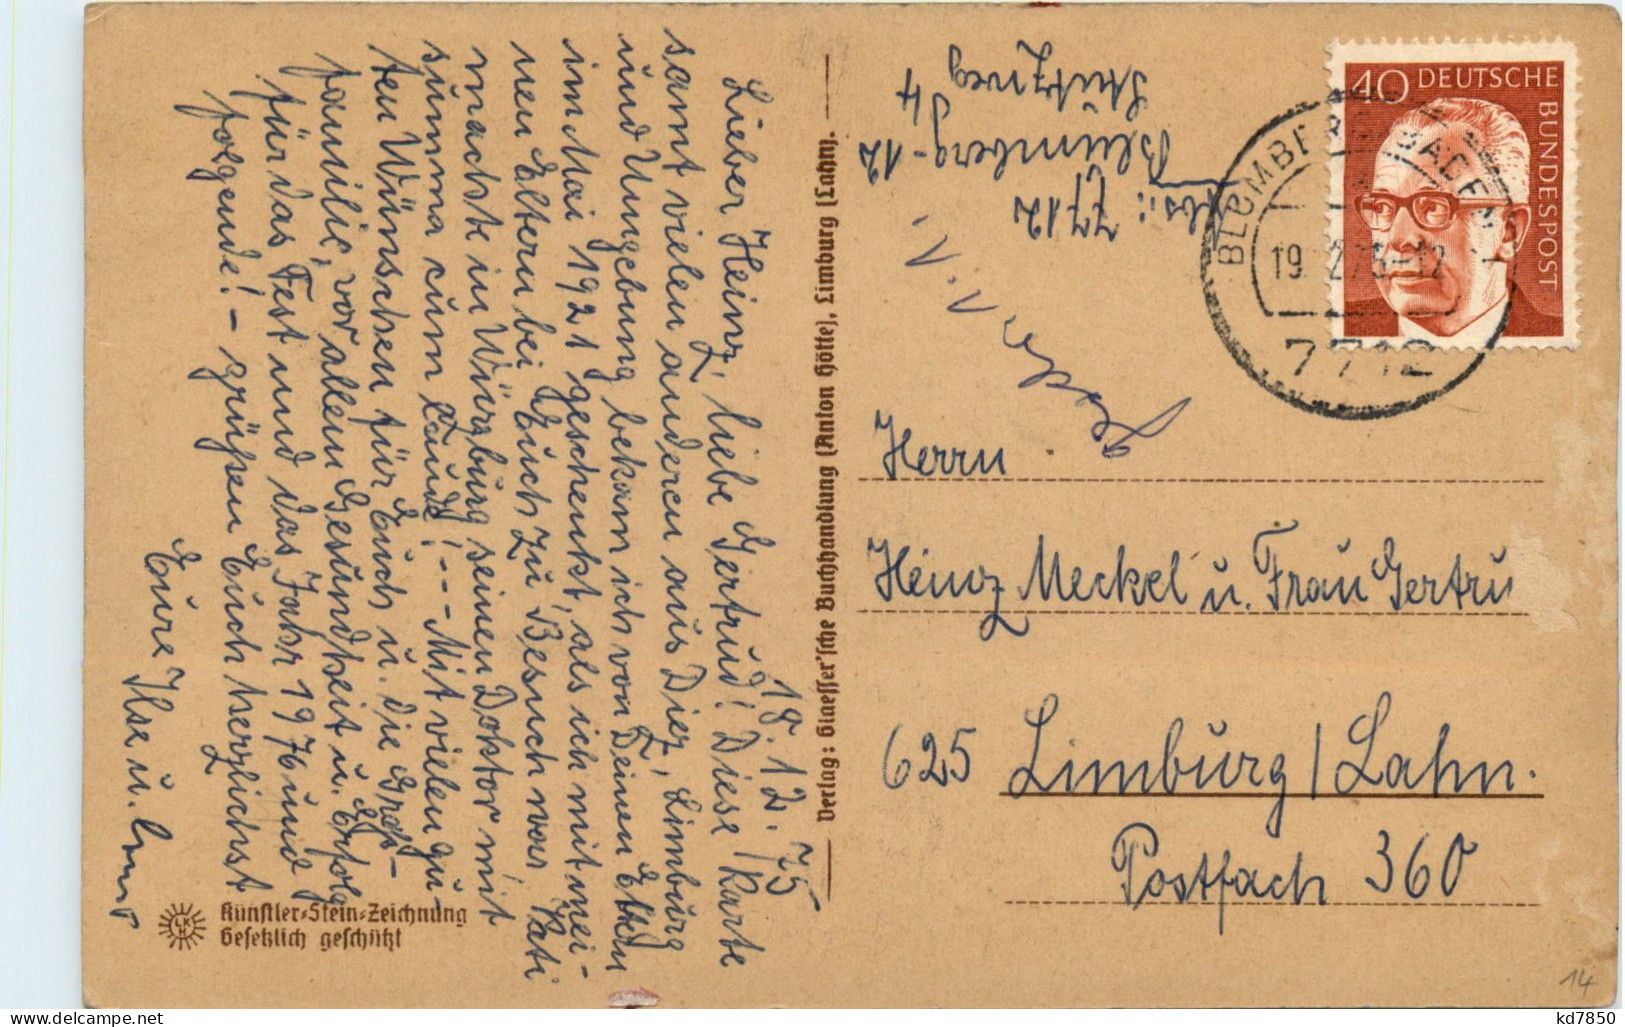 18. 12. 75
Lieber Heinz, liebe Gertrud! Diese Karte
samt vielen anderen aus Diez, Limburg
und Umgebung bekam ich von Deinen Eltern
im Mai 1921 geschenkt, als ich mit mei-
nen Eltern bei Euch zu Besuch war. Vati
machte in Würzburg seinen Doktor mit
summa cum laude! --- Mit vielen gu-
ten Wünschen für Euch u. die Groß-
familie, vor allem Gesundheit u. Erfolg
für das Fest und das Jahr 1976 und
folgende! - grüßen Euch herzlichst
Eure Ilse u. Ernst
Künstler-Stein-Zeichnung
Gesetzlich geschützt
LKH
Verlag: Glaesser'sche Buchhandlung (Anton Hötte), Limburg (Lahn).
Abs.: 7712
Blumberg-12
Stützweg
14
40 DEUTSCHE
BUNDESPOST
BLUMBERG, BADEN 1
19.12.75-12
7712
Herrn
Heinz Meckel u. Frau Gertru
625 Limburg/Lahn.
Postfach 360
14
kd7850